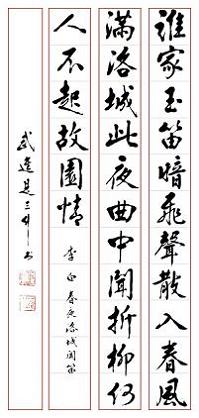 誰家玉笛暗飛聲散入春風
滿洛城此夜曲中聞折柳何
人不起故園情
李白春夜洛城聞笛
武進